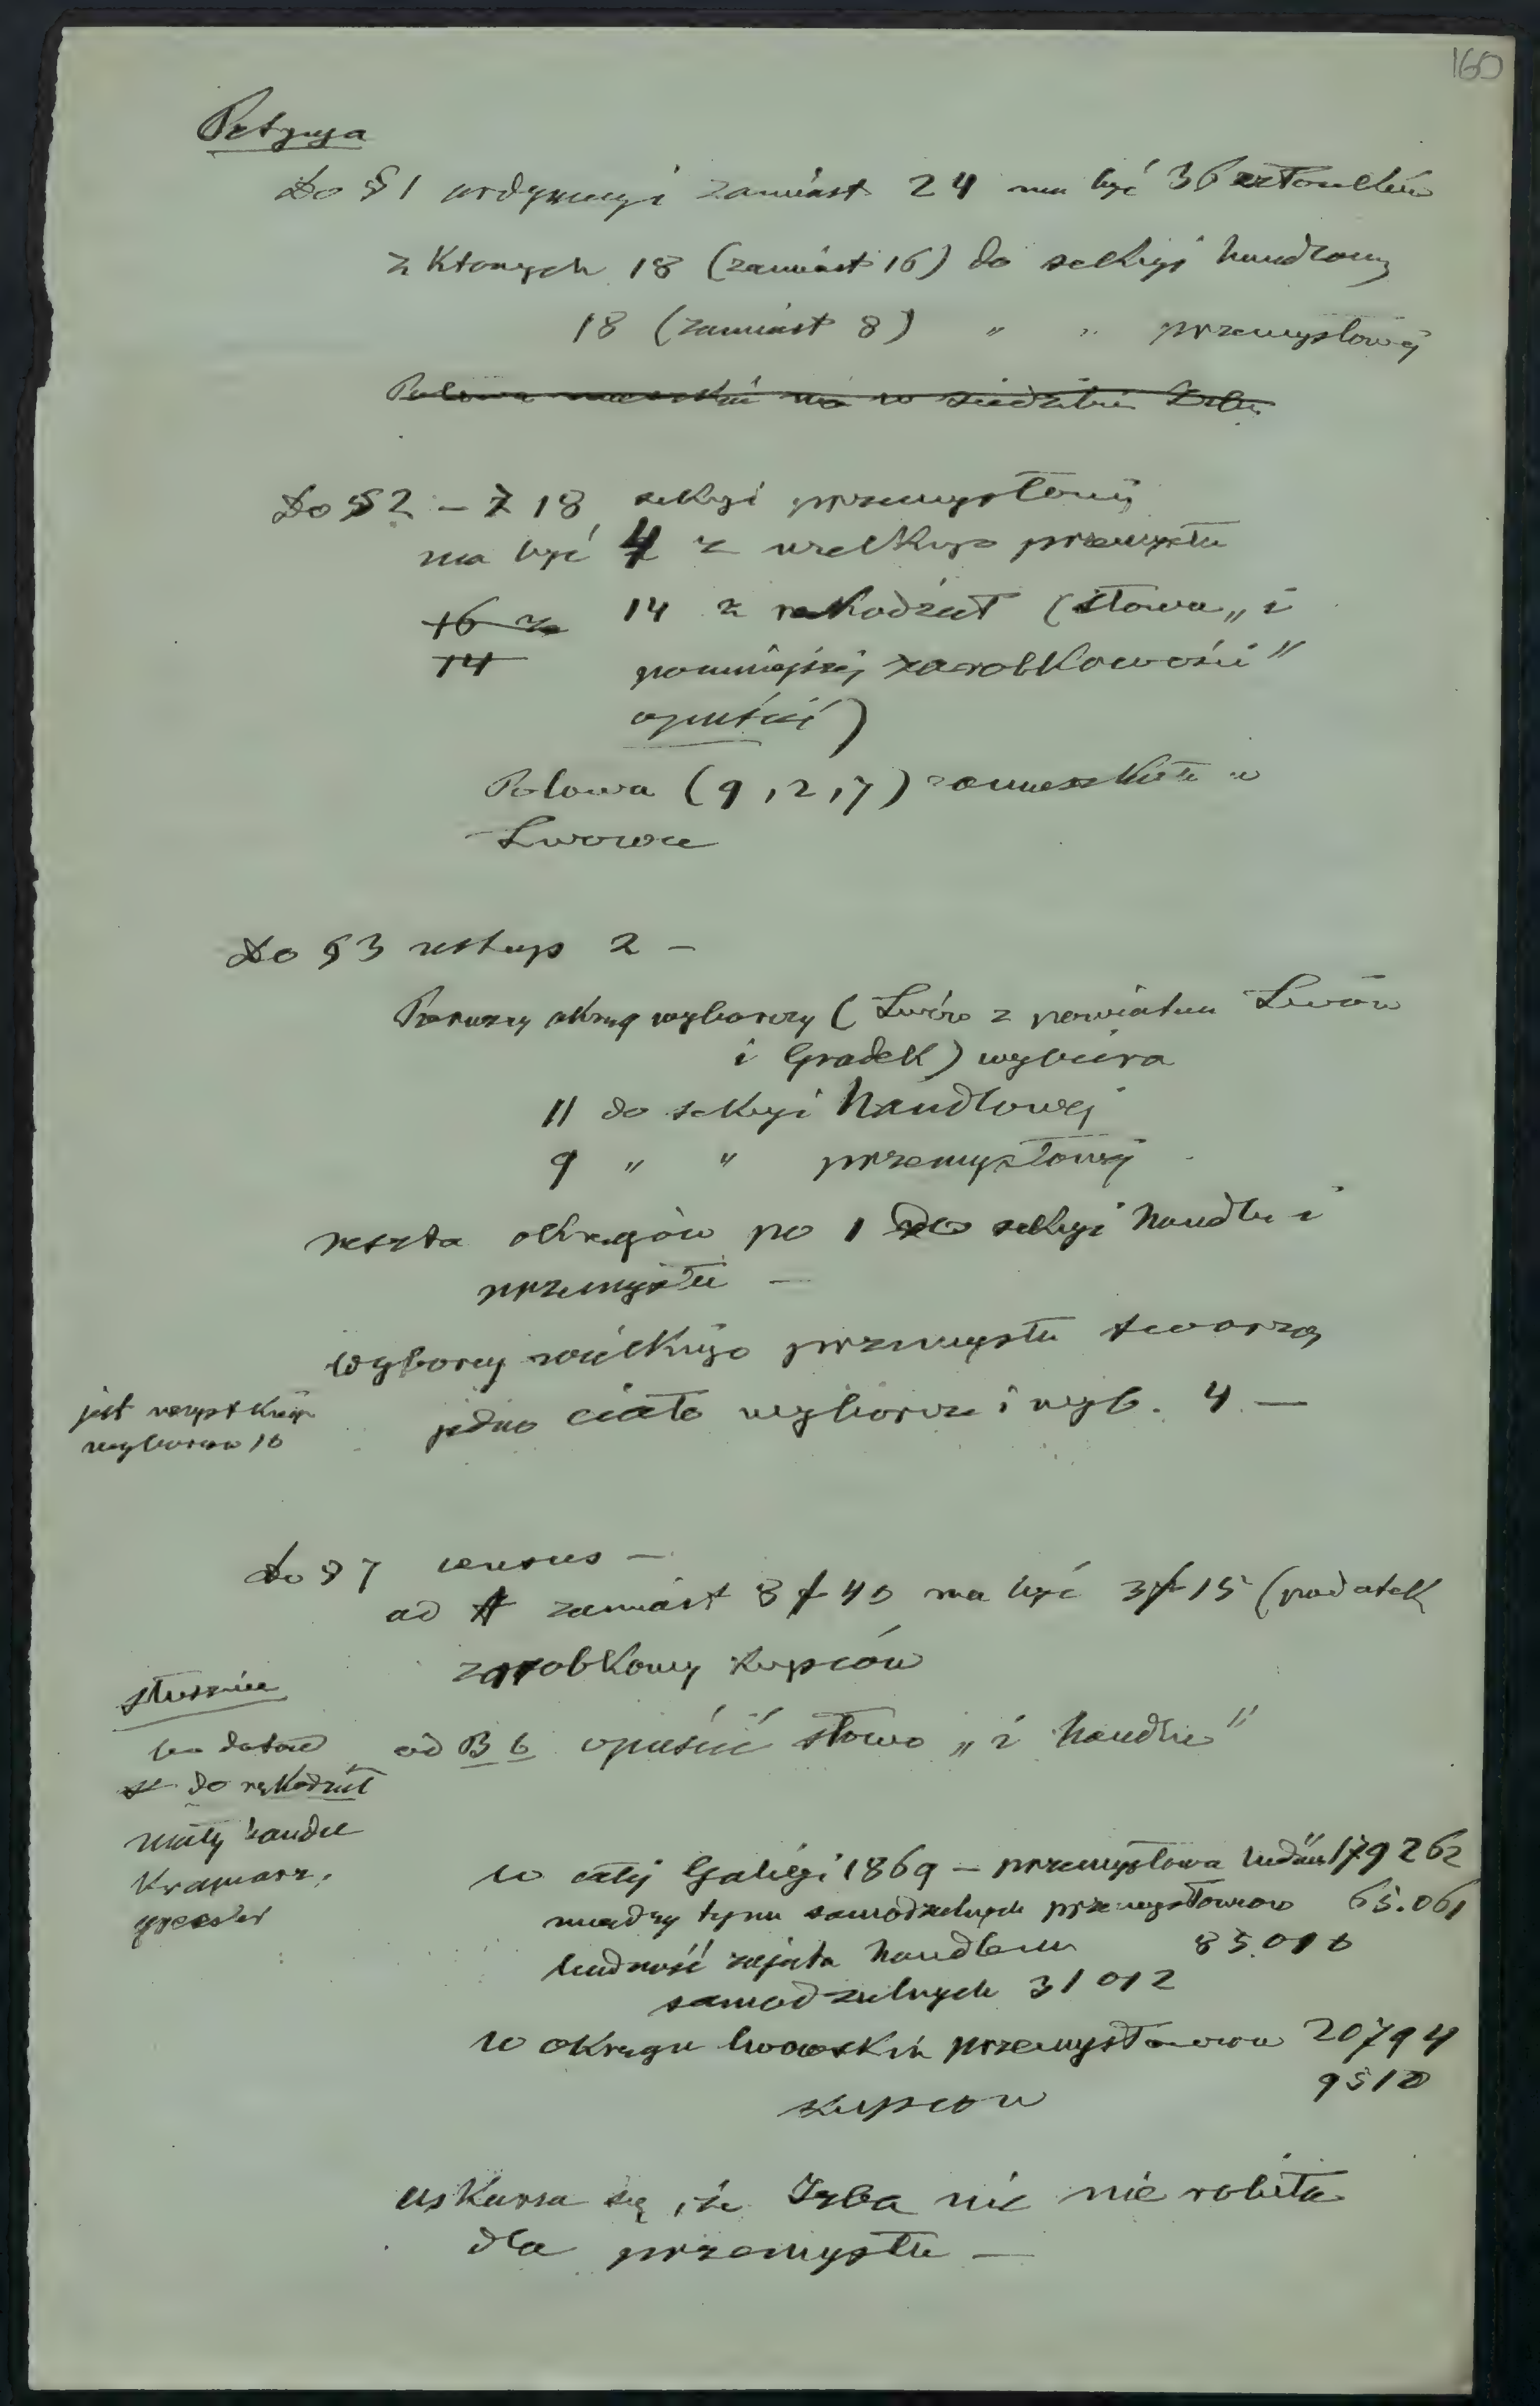 160
Petycya
Do § 1 ordynacyi zamiast 24 ma być 36 członków
z których 18 (zamiast 16) do sekcyi handlowej
18 (zamiast 8) " " przemysłowej
Połowa mieszkać ma w siedzibie Izby
Do § 2 – z 18 sekcyi przemysłowej
ma być 4 z wielkiego przemysłu
16 z 14 z rękodzieł (słowa „i
14 pomniejszej zarobkowości"
opuścić)
Połowa (9, 2, 7) zamieszkała w
Lwowie
Do § 3 ustęp 2 –
Pierwszy okrąg wyborczy (Lwów z powiatem Lwów
i Gródek) wybiera
11 do sekcyi handlowej
9 " " przemysłowej
reszta okręgów po 1 do sekcyi handlu i
przemysłu –
wyborcy wielkiego przemysłu tworzą
jedno ciało wyborcze i wyb. 4 –
jest wszystkich
wyborców 16
Do § 7 census –
ad A zamiast 8 f 40 ma być 3 f 15 (podatek
zarobkowy kupców
ad B b opuścić słowo „i handlu"
słusznie
do rękodzieł
mały handel
kramarz.
w całej Galicyi 1869 – przemysłowa ludność 179 262
między tymi samodzielnych przemysłowców 65.061
ludność zajęta handlem 85.016
samodzielnych 31 012
w okręgu lwowskim przemysłowców 20794
kupców 9510
uskarża się, że Izba nic nie robiła
dla przemysłu –